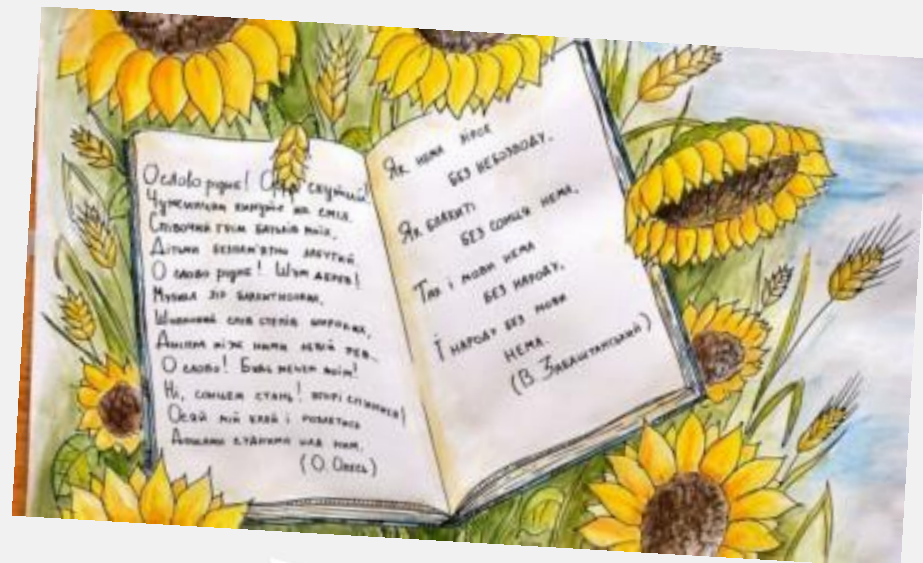 О слово рідне! Орле скутий!
Чужинцям кинуте на сміх.
Співочий грім батьків моїх,
Дітьми безпам'ятно забутий.
О слово рідне! Шум дерев!
Музика зір блакитнооких,
Шовковий спів степів широких,
Дніпра між ними левій рев...
О слово! Будь мечем моїм!
Ні, сонцем стань! вгорі спинися!
Осяй мій край і розлетися
Дощами судними над ним.
(О. Олесь)
Як нема зірок
без небозводу,
Як блакиті
без сонця нема,
Так і мови нема
без народу,
І народу без мови
нема.
(В. Забаштанський)